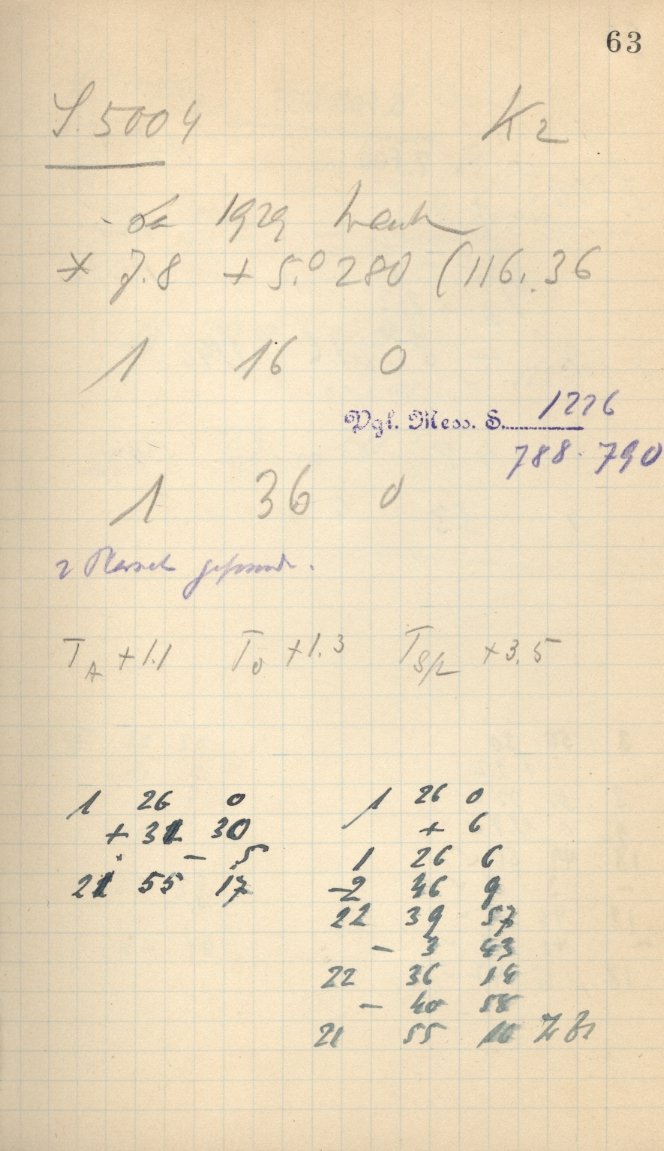 63
S. 5004 K2
1929
* 7.8 + 5.° 280 (116.36
1 16 0
Vgl. Mess. S. 1226
788. 790
1 36 0
2
T_A +1.1 T_O +1.3 T_Sp +3.5
1 26 0 1 26 0
+ 31 30 + 6
- 5 1 26 6
21 55 17 -2 46 9
22 39 57
- 3 43
22 36 14
- 40 58
21 55 16